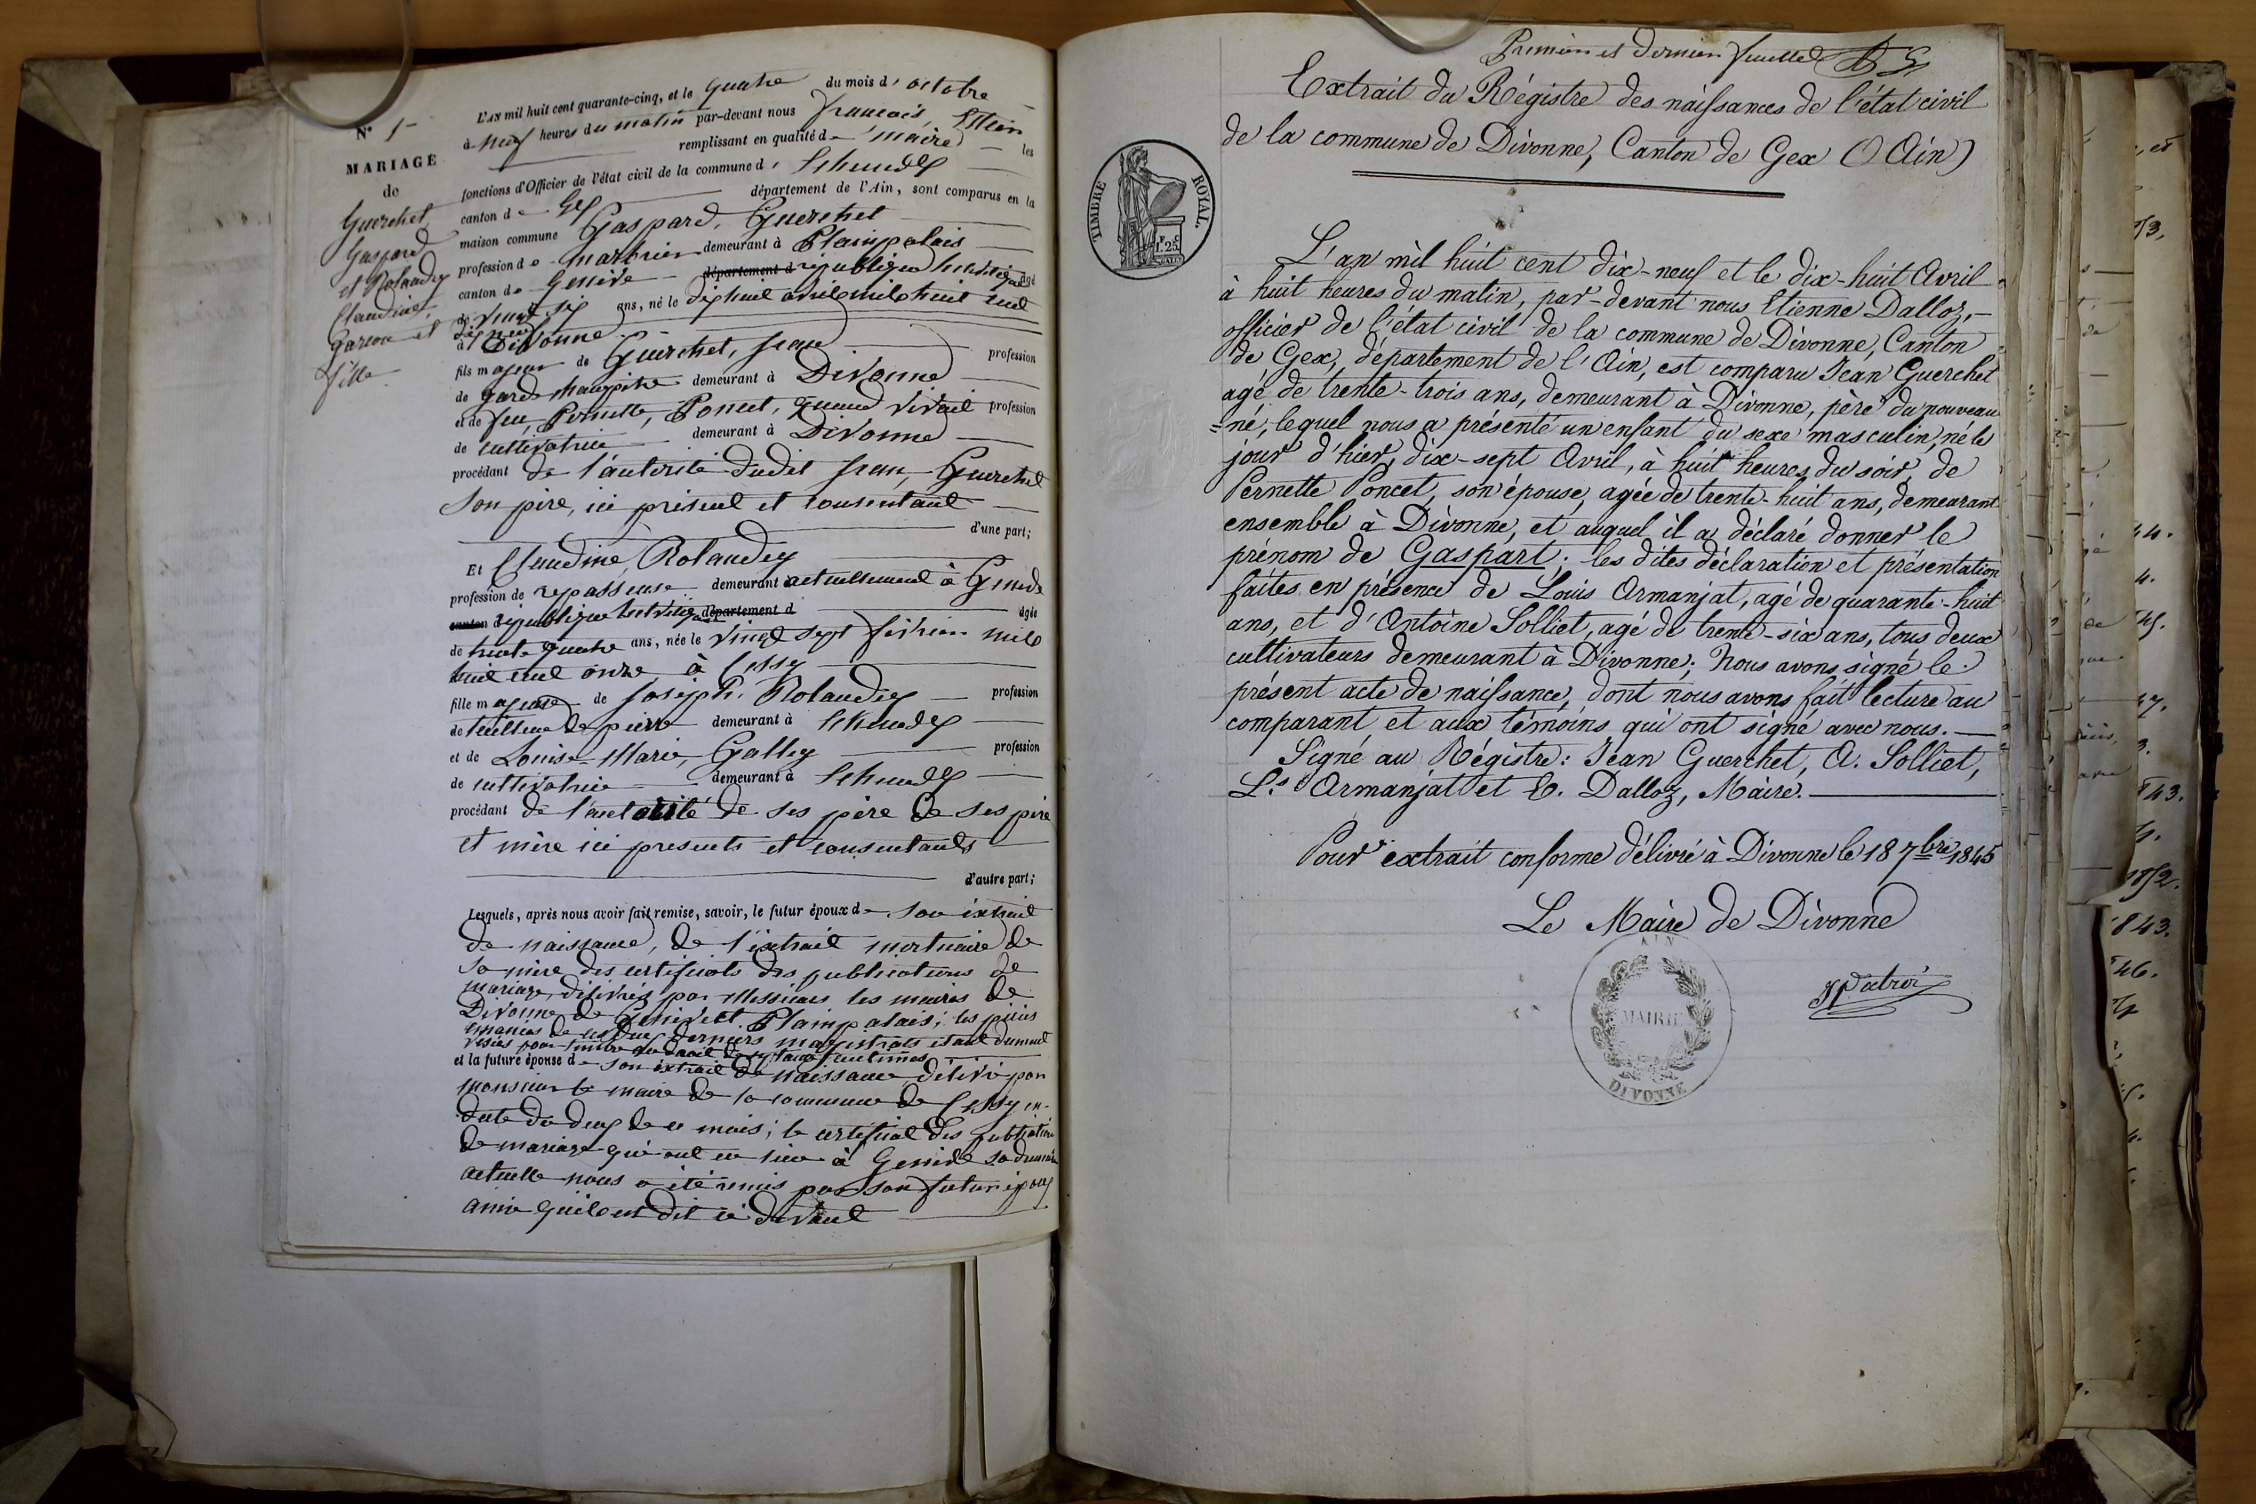 N° 5
MARIAGE
de
Guerchet,
Gaspard
et Rolandey
Claudine,
Garcon et
fille
L'AN mil huit cent quarante-cinq, et le quatre du mois d'octobre
à neuf heures du matin par-devant nous francois,
remplissant en qualité de maire les
fonctions d'Officier de l'état civil de la commune d'
canton de Gex département de l'Ain, sont comparus en la
maison commune Gaspard, Guerchet
profession de marbrier demeurant à Plainpalais
canton de Genève département d république agé
de vingt six ans, né le dix huit avril mil huit cent
dix neuf
à Divonne
fils majeur de Guerchet, Jean profession
de garde champêtre demeurant à Divonne
et de feu, Pernette, Poncet, quand vivait profession
de cultivatrice demeurant à Divonne
procédant de l'autorité dudit Jean, Guerchet
son père, ici présent et consentant
d'une part;
Et Claudine, Rolandey
profession de repasseuse demeurant actuellement à Genève
canton d république département d agée
de trente quatre ans, née le vingt sept février mil
huit cent onze à Cessy
fille majeure de Joseph, Rolandey profession
de tailleur de pierre demeurant à
et de Louise-Marie, Golley profession
de cultivatrice demeurant à
procédant de l'autorité de ses père de ses père
et mère ici présents et consentants
d'autre part;
Lesquels, après nous avoir fait remise, savoir, le futur époux de son extrait
de naissance, de l'extrait mortuaire de
sa mère des certificats des publications de
mariage, délivrés par Messieurs les maires de
Divonne de Genève et Plainpalais; les pièces
émanées de ces deux derniers magistrats étant dument
visées pour timbre au droit de septante centimes
et la future épouse de son extrait de naissance délivré par
monsieur le maire de la commune de Cessy en
date du deux de ce mois; le certificat des publications
de mariage qui ont eu lieu à Genève sa demeure
actuelle nous a été remis par son futur époux
ainsi qu'il est dit ci devant
Premier et dernier feuillet
Extrait du Régistre des naissances de l'état civil
de la commune de Divonne, Canton de Gex (Ain)
TIMBRE ROYAL
1F 25C
L'an mil huit cent dix-neuf et le dix-huit Avril
à huit heures du matin, par-devant nous Etienne Dalloz,
officier de l'état civil de la commune de Divonne, Canton
de Gex, département de l'Ain, est comparu Jean Guerchet
agé de trente-trois ans, demeurant à Divonne, père du nouveau
=né, lequel nous a présenté un enfant du sexe masculin, né le
jour d'hier, dix-sept Avril, à huit heures du soir, de
Pernette Poncet, son épouse, agée de trente-huit ans, demeurant
ensemble à Divonne, et auquel il a déclaré donner le
prénom de Gaspart; les dites déclaration et présentation
faites en présence de Louis Armanjat, agé de quarante-huit
ans, et d'Antoine Solliet, agé de trente-six ans, tous deux
cultivateurs demeurant à Divonne; Nous avons signé le
présent acte de naissance, dont nous avons fait lecture au
comparant et aux témoins qui ont signé avec nous.
Signé au Régistre: Jean Guerchet, A. Solliet,
Ls Armanjat et E. Dalloz, Maire.
Pour extrait conforme délivré à Divonne le 18 7bre 1845
Le Maire de Divonne
AIN
MAIRIE
DIVONNE